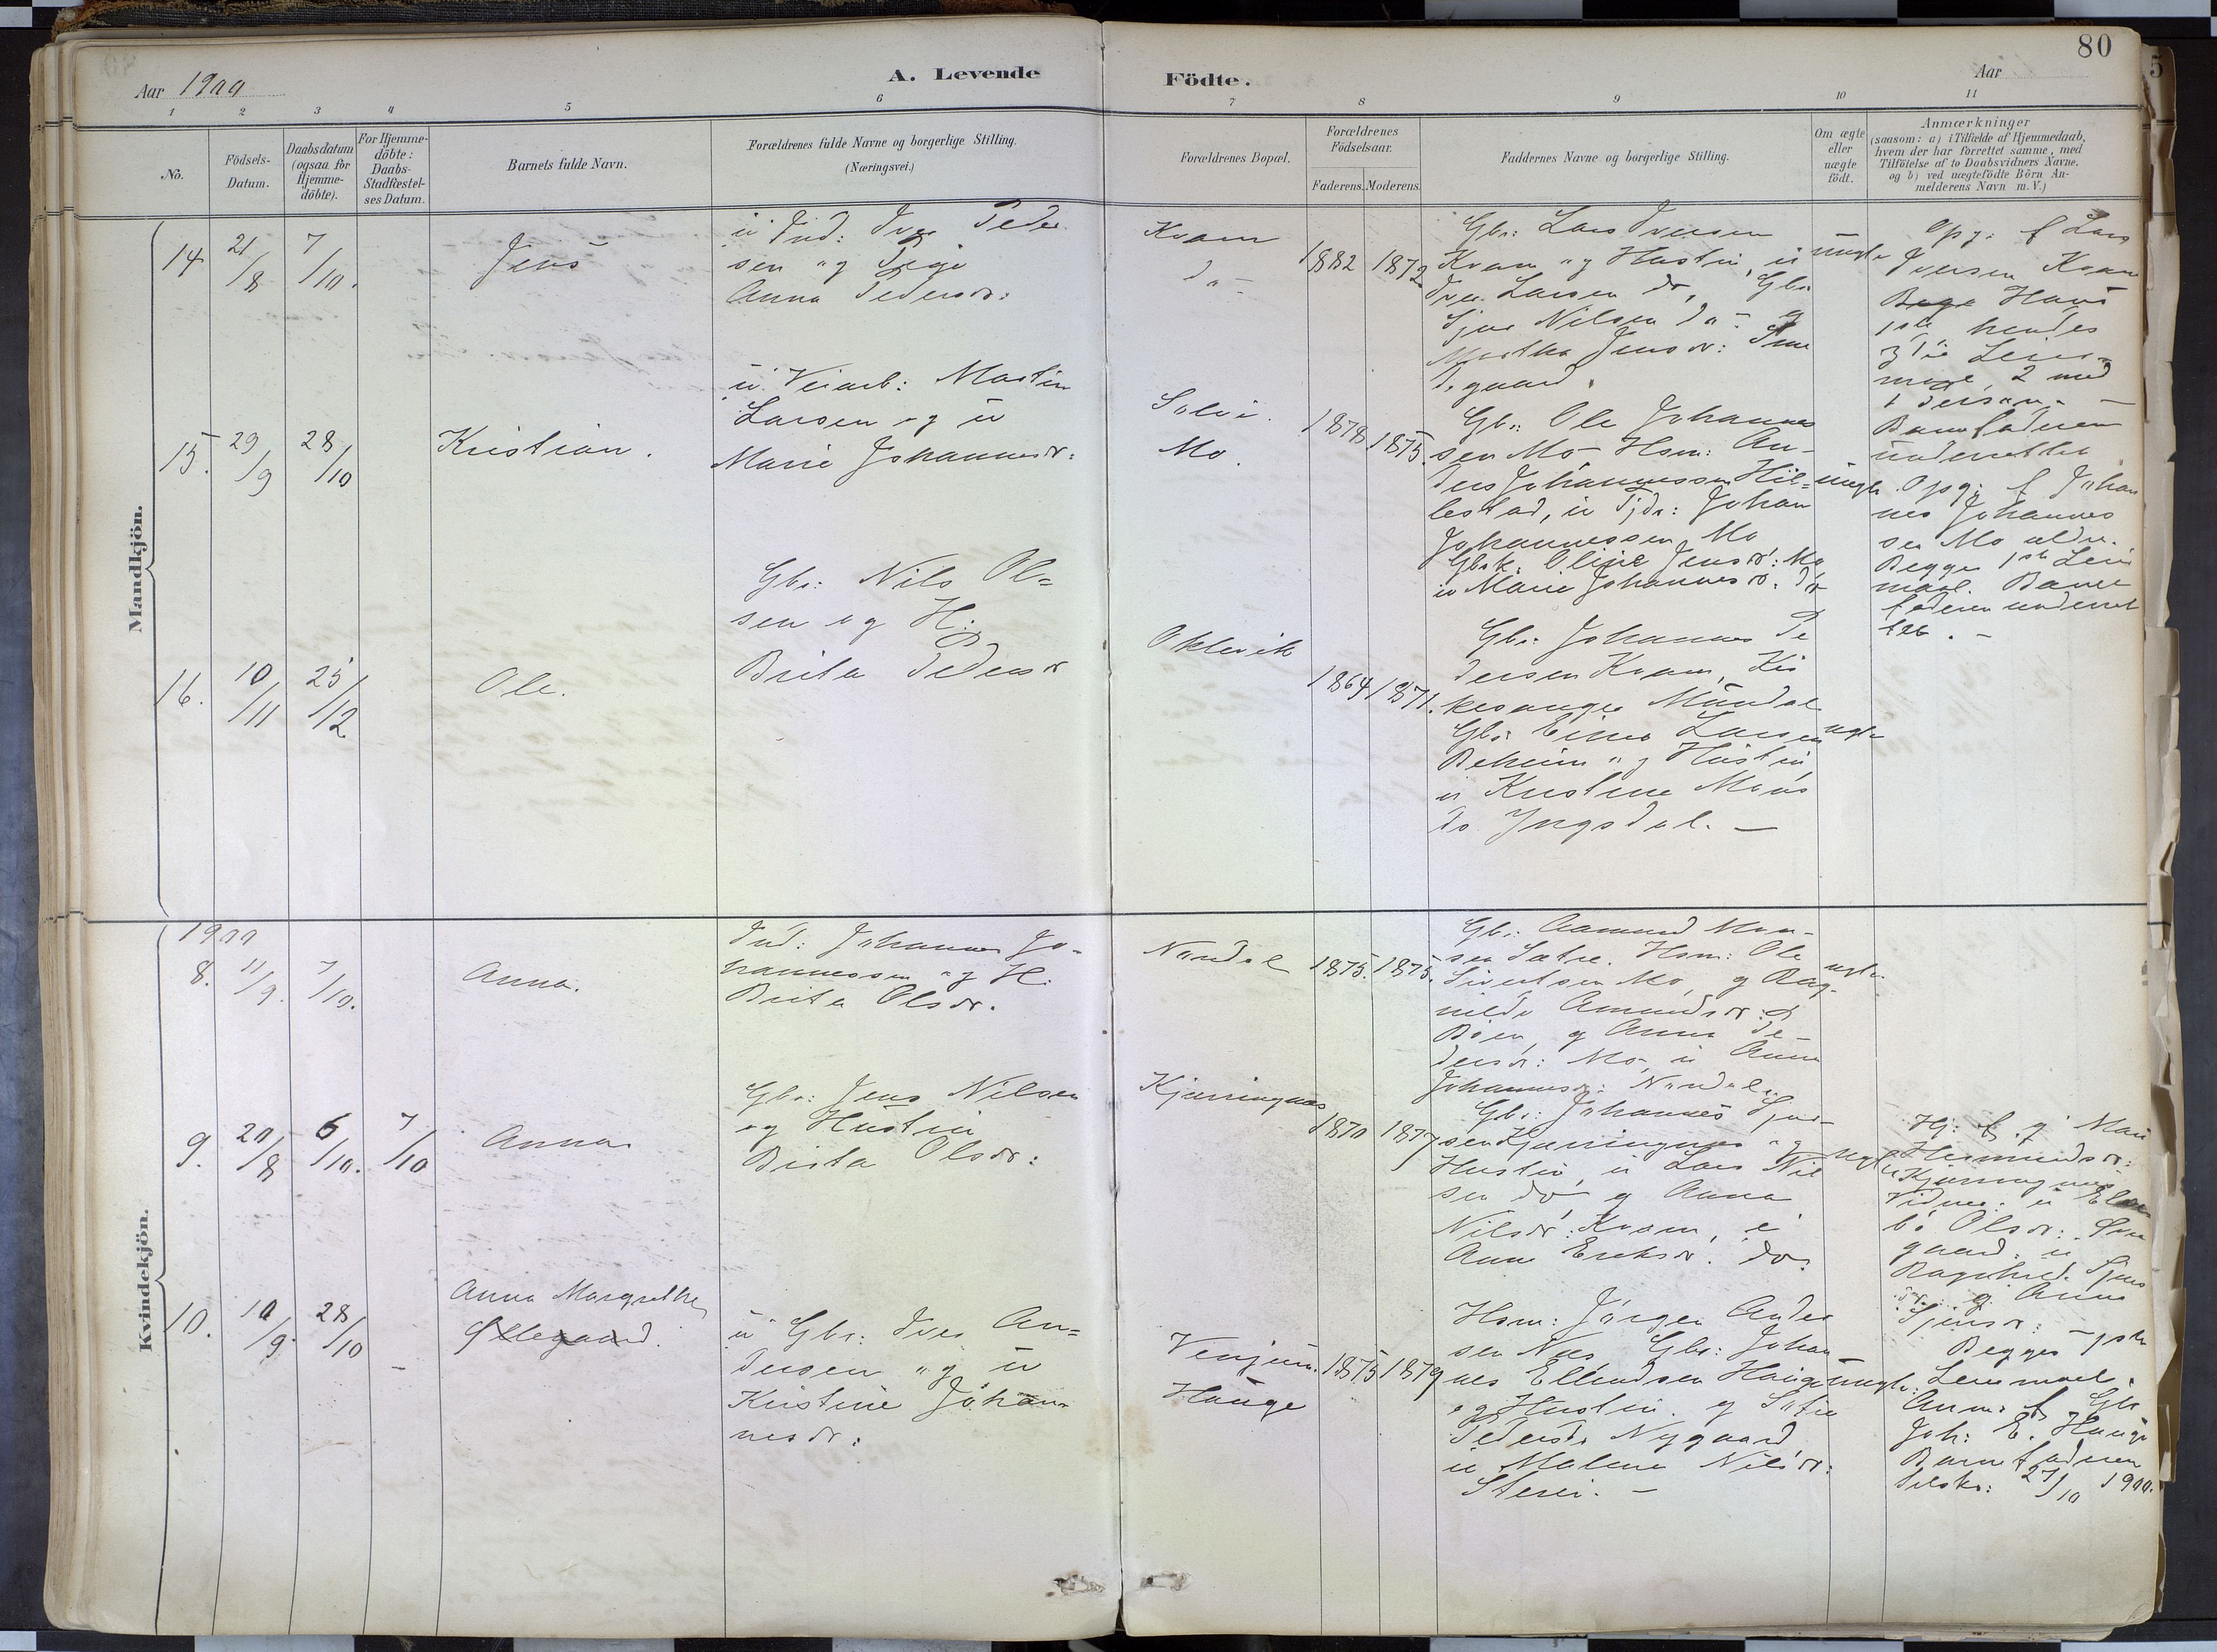 80
Aar 1900
A. Levende
Födte.
Aar
1 2 3 4 5 6 7 8 9 10 11
No.
Födsels-
Datum.
Daabsdatum
(ogsaa for
Hjemme-
döbte).
For Hjemme-
döbte:
Daabs-
Stadfæstel-
ses Datum.
Barnets fulde Navn.
Forældrenes fulde Navne og borgerlige Stilling.
(Næringsvei.)
Forældrenes Bopæl.
Forældrenes
Födselsaar.
Faderens. Moderens.
Faddernes Navne og borgerlige Stilling.
Om ægte
eller
uægte
födt.
Anmærkninger
(saasom: a) i Tilfælde af Hjemmedaab,
hvem der har forrettet samme, med
Tilföielse af to Daabsvidners Navne,
og b) ved uægtefödte Börn An-
melderens Navn m. V.)
Mandkjön.
14
21/8
7/10.
Jens
Ind: Iver Peder
sen og Pige
Anna Pedersdr:
Kvam
do
1882 1872
Gbr: Lars Iversen
Kvam og Hustru, u
Iver Larsen do, Gbr
Sjur Nilsen do og
Martha Jensdr:
uægte
Opg: f Lars
Iversen Kvam
Hans
1ste hendes
3die Leier-
maal, 2 med
Barnefaderen
underrettet
15.
29/9
28/10
Kristian.
u Veiarb: Martin
Larsen og u
Marie Johannesdr:
Mo.
1878 1875.
Gbr: Ole Johannes
sen Mo Hsm: An-
ders Johannessen Hil-
lestad, u Tjdr: Johan
Johannessen Mo
Gbrk: Oline Jensdr: Mo
u Marie Johannesdr: do
uægte
Opg: f Johan
nes Johannes
sen Mo
Begges 1ste Leier
maal. Barne
faderen underret
tet. -
16.
10/11
25/12
Ole.
Gbr: Nils Ol=
sen og H:
Brita Pedersdr
Oklevik
1864 1871.
Gbr: Johannes Pe
dersen Kvam, Kir
kesanger Mundal
Gbr: Einar Larsen
Beheim og Hustru,
u Kristine Mons
dr Yngsdal. -
ægte
Kvindekjön.
1900
8.
11/9.
7/10.
Anna.
Ind: Johannes Jo-
hannessen og H:
Brita Olsdr.
Nondal
1875. 1875.
Gbr: Aamund Mon-
sen Sætre. Hsm: Ole
Sivertsen Mo, og Rag-
nilda Amundsdr:
Böen, og Anna Pe-
dersdr: Mo, u Anna
Johannesdr: Nondal
ægte
9.
20/8
6/10.
7/10
Anna
Gbr: Jens Nilsen
og Hustru
Brita Olsdr:
Kjærringnes
1870 1877
Gbr: Johannes Sjur-
sen Kjærringnes og
Hustru, u Lars Nil
sen do og Anna
Nilsdr: Kvam, u
Anna Eriksdr. do.
ægte
Hj: f g Mari
Hermundsdr:
Kjærringnes
Vidner: u
Olsdr:
gaard, u
Ragnhild Sjurs
dr. og Anna
Sjursdr:
10.
10/9
28/10
-
Anna Margrethe
Øllegaard.
u Gbr: Iver An=
dersen og u
Kristine Johan-
nesdr:
Venjum.
Hauge
1875 1879
Hsm: Jörgen Anders
sen Næs Gbr: Johan-
nes Ellendsen Hauge
og Hustru. og Sofie
Pedersdr Nygaard
u Malene Nilsdr:
Sterri. -
uægte.
Begges 1ste
Leiermaal.
Anm: f Gbr
Joh: E. Hauge
Barnefaderen
tilskr: 27/10 1900.